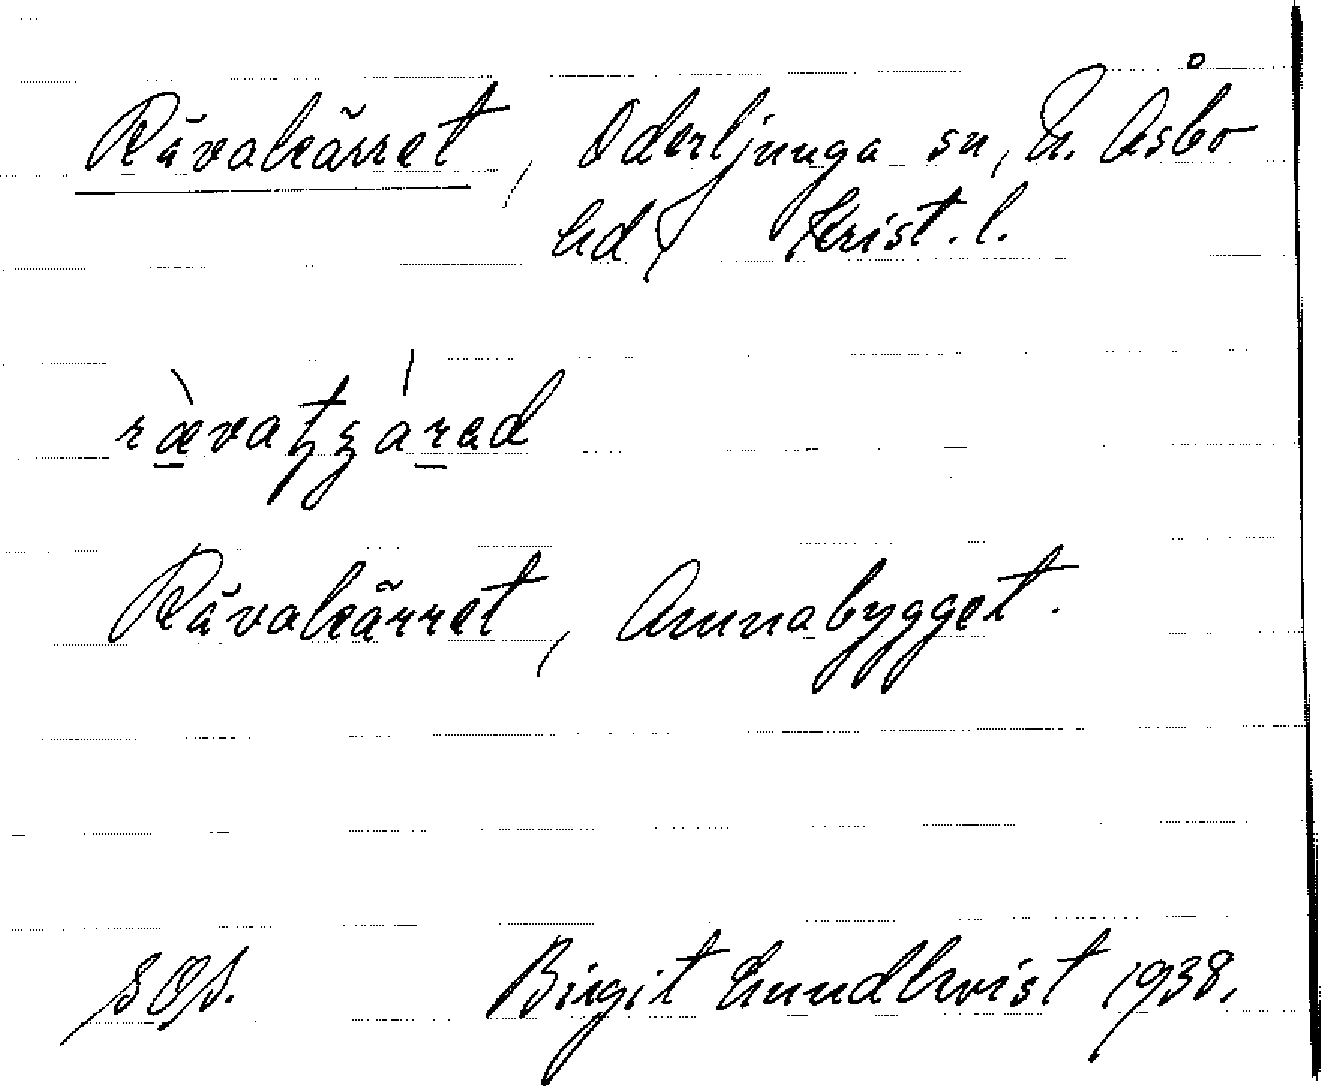 Rävakärret, Oderljunga sn, N. Åsbo
hd, Krist. l.
rævatʒarad
Rävakärret, Annabygget.
S.O.J. Birgit Lundkvist 1938.